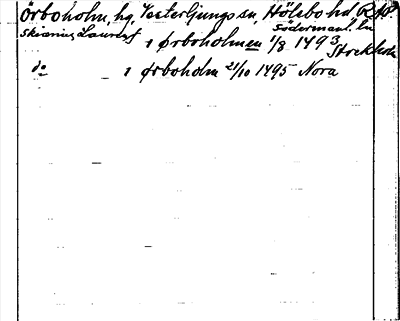 Örboholm, hg, Vesterljungs sn, Hölebo hd, RAp.
Södermanl. ln
Skianius Laurens 1 ørboholmen 1/8 1493
Stockholm
do 1 ørboholm 21/10 1495 Nora